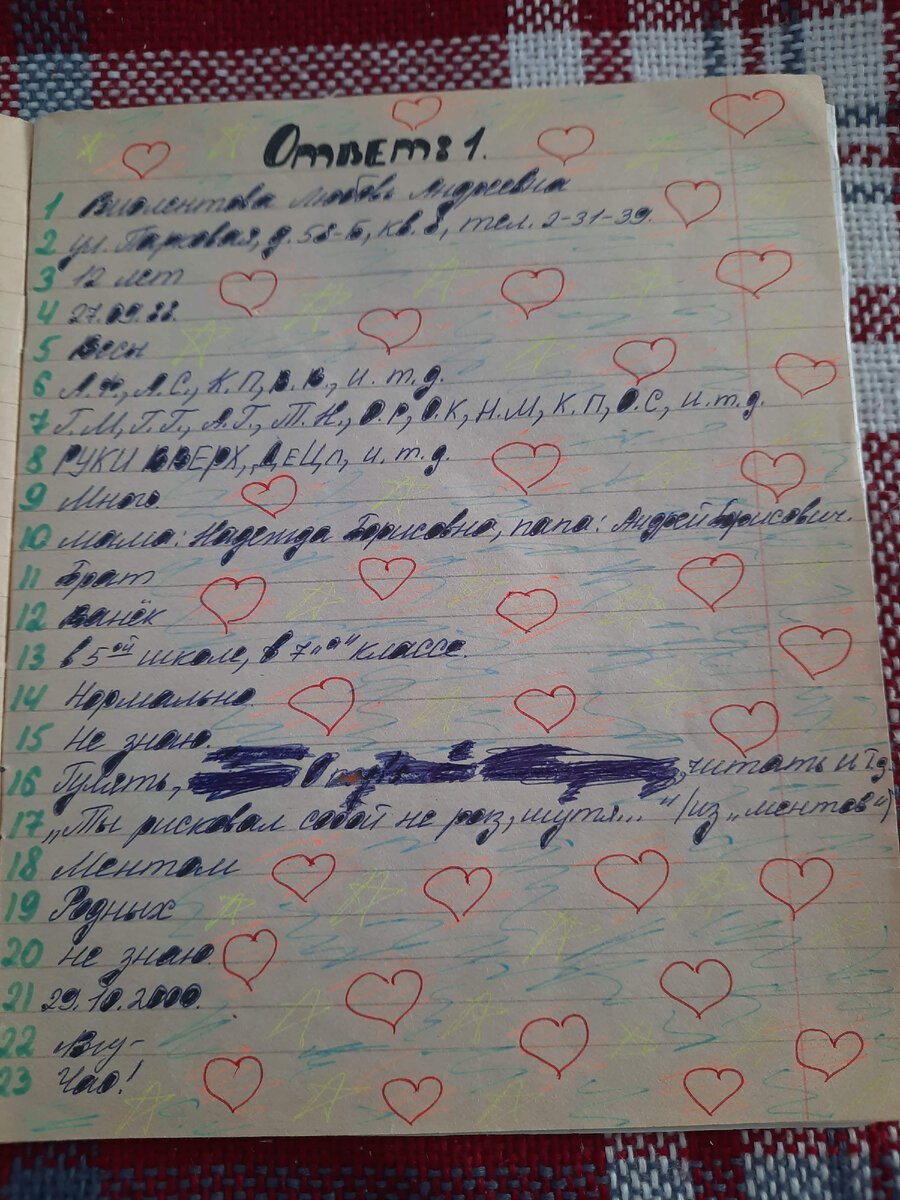 ОТВЕТЫ 1.
1 Виолентова Любовь Андреевна
2 ул. Парковая, д. 58-Б, кв. 8, тел. 2-31-39.
3 12 лет
4 27.09.88.
5 Весы
6 А.Ф, А.С, К.П, В.В., и.т.д.
7 Г.М, Г.Г, А.Г, Т.Н, О.Р, О.К, Н.М, К.П, О.С, и.т.д.
8 РУКИ ВВЕРХ, ДЕЦЛ, и.т.д.
9 Много.
10 мама: Надежда Борисовна, папа: Андрей Борисович.
11 Брат
12 Ванёк
13 в 5ой школе, в 7 "а" классе.
14 Нормально.
15 не знаю.
16 Гулять, читать и т.д.
17 „Ты рисковал собой не раз, шутя..." /из „ментов")
18 Ментом
19 Родных
20 не знаю.
21 29.10.2000.
22
23 Чао!